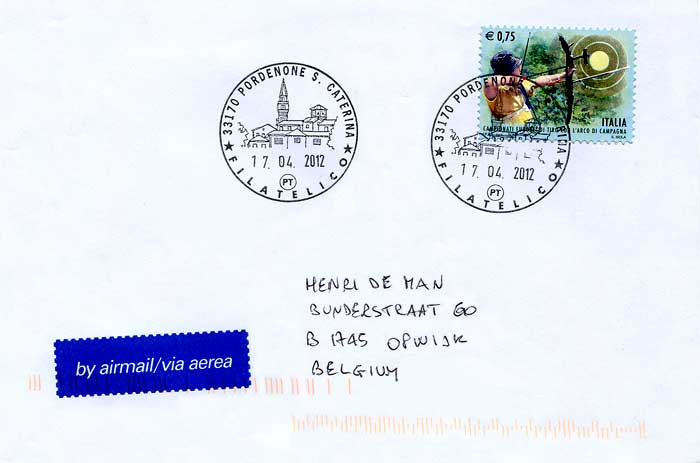 € 0,75
ITALIA
CAMPIONATI EUROPEI DI TIRO CON L'ARCO DI CAMPAGNA
33170 PORDENONE S. CATERINA
17. 04. 2012
PT
FILATELICO
33170 PORDENONE S.
17. 04. 2012
PT
FILATELICO
HENRI DE MAN
BUNDERSTRAAT 60
B 1745 OPWIJK
BELGIUM
by airmail/via aerea